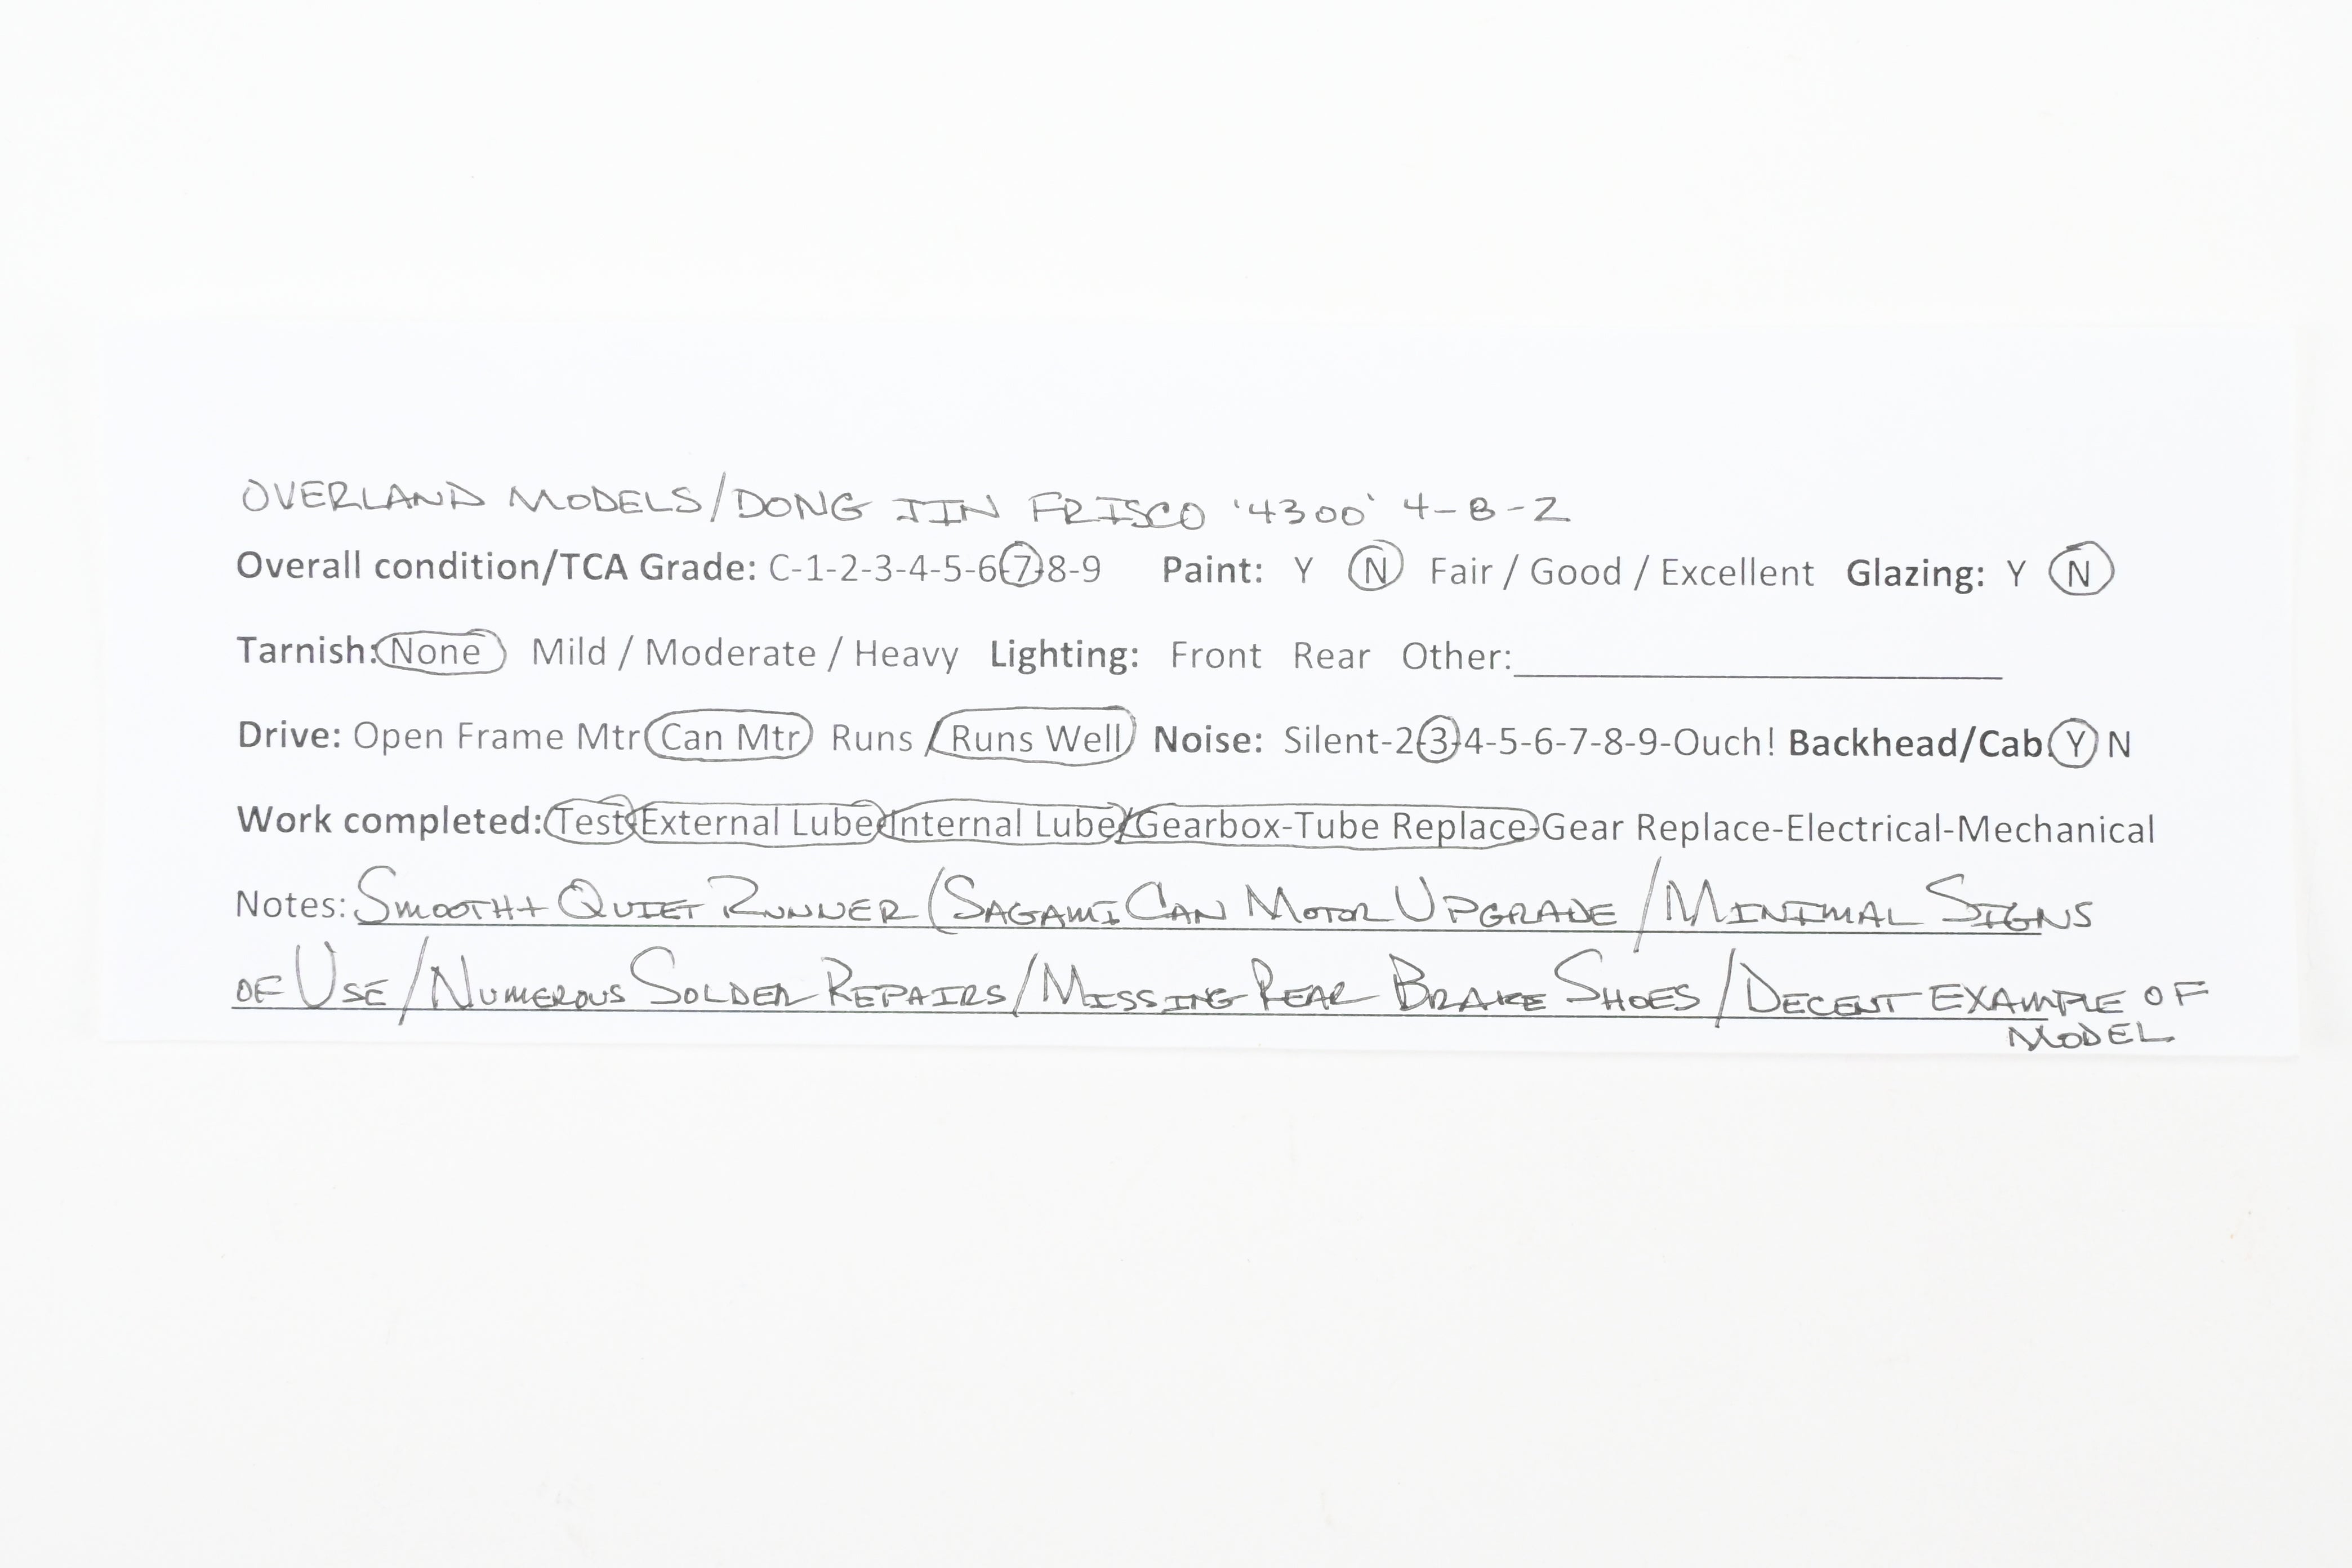 OVERLAND MODELS/DONG JIN FRISCO '4300' 4-8-2
Overall condition/TCA Grade: C-1-2-3-4-5-6-7-8-9 Paint: Y N Fair / Good / Excellent Glazing: Y N
Tarnish: None Mild / Moderate / Heavy Lighting: Front Rear Other:
Drive: Open Frame Mtr Can Mtr Runs / Runs Well Noise: Silent-2-3-4-5-6-7-8-9-Ouch! Backhead/Cab: Y N
Work completed: Test-External Lube-Internal Lube-Gearbox-Tube Replace-Gear Replace-Electrical-Mechanical
Notes: SMOOTH + QUIET RUNNER (SAGAMI CAN MOTOR UPGRADE / MINIMAL SIGNS
OF USE / NUMEROUS SOLDER REPAIRS / MISSING REAR BRAKE SHOES / DECENT EXAMPLE OF
MODEL